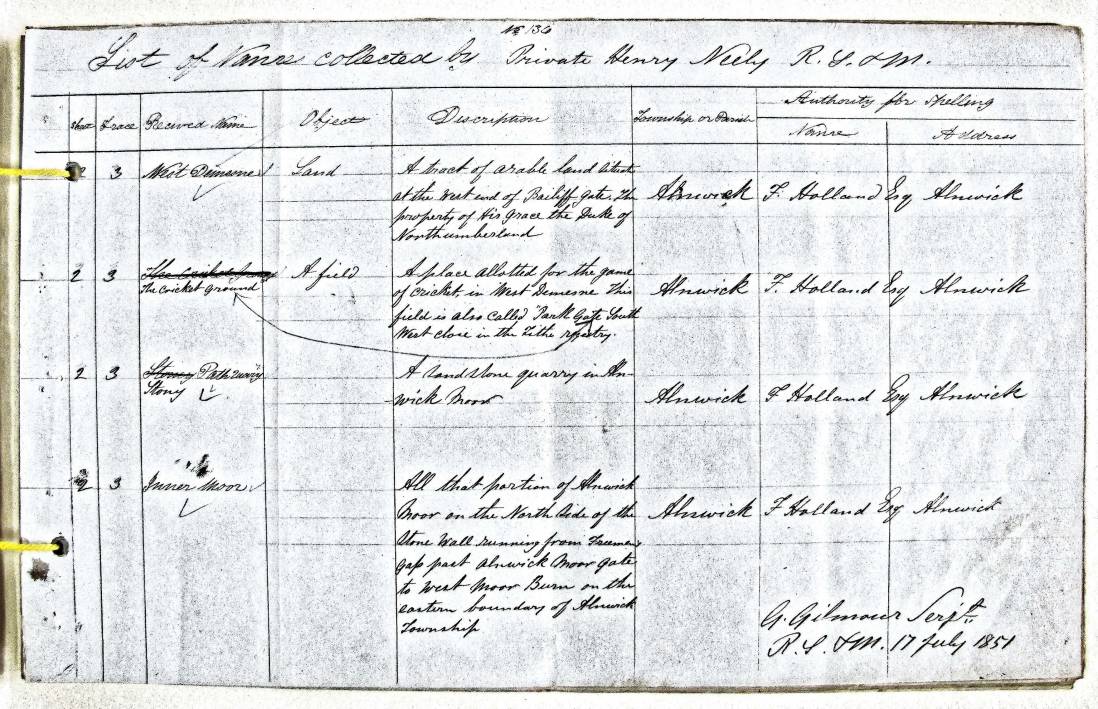 No 136
List of Names collected by Private Henry Neely R. S. & M.
Sheet Trace Received Name Object Description Township or Parish Authority for Spelling
Name Address
2 3 West Demesne Land A tract of arable land situat
at the West end of Bailiff Gate. The
property of His Grace the Duke of
Northumberland
Alnwick F. Holland Esq Alnwick
2 3 The Cricket ground A field A place allotted for the game
of cricket, in West Demesne This
field is also called "Park Gate South
West close in the Tithe registry.
Alnwick F. Holland Esq Alnwick
2 3 Stoney Pathway
Stony
A sandstone quarry in Aln-
wick Moor
Alnwick F Holland Esq Alnwick
2 3 Inner Moor All that portion of Alnwick
Moor on the North Side of the
Stone Wall running from Freemen
gap past Alnwick Moor Gate
to West Moor Burn on the
eastern boundary of Alnwick
Township
Alnwick F Holland Esq Alnwick
G. Gilmour Serjt.
R. S. & M. 17 July 1851